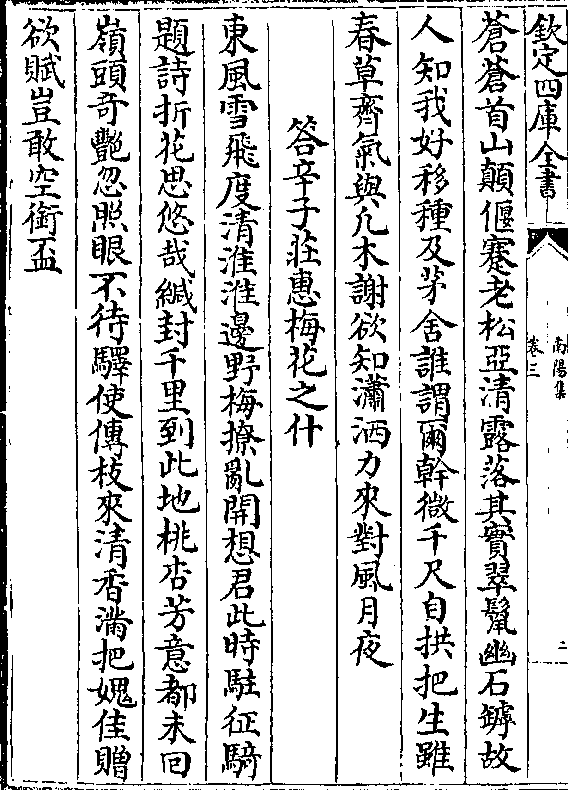 欽定四庫全書
南陽集
卷三
二
蒼蒼首山顛偃蹇老松亞清露落其實翠鬣幽石罅故
人知我好移種及茅舍誰謂爾幹微千尺自拱把生雖
春草齊氣與凡木謝欲知瀟洒力來對風月夜
答辛子莊惠梅花之什
東風雪飛度清淮淮邊野梅撩亂開想君此時駐征騎
題詩折花思悠哉緘封千里到此地桃杏芳意都未回
嶺頭奇艷忽照眼不待驛使傳枝來清香滿把媿佳贈
欲賦豈敢空銜盃